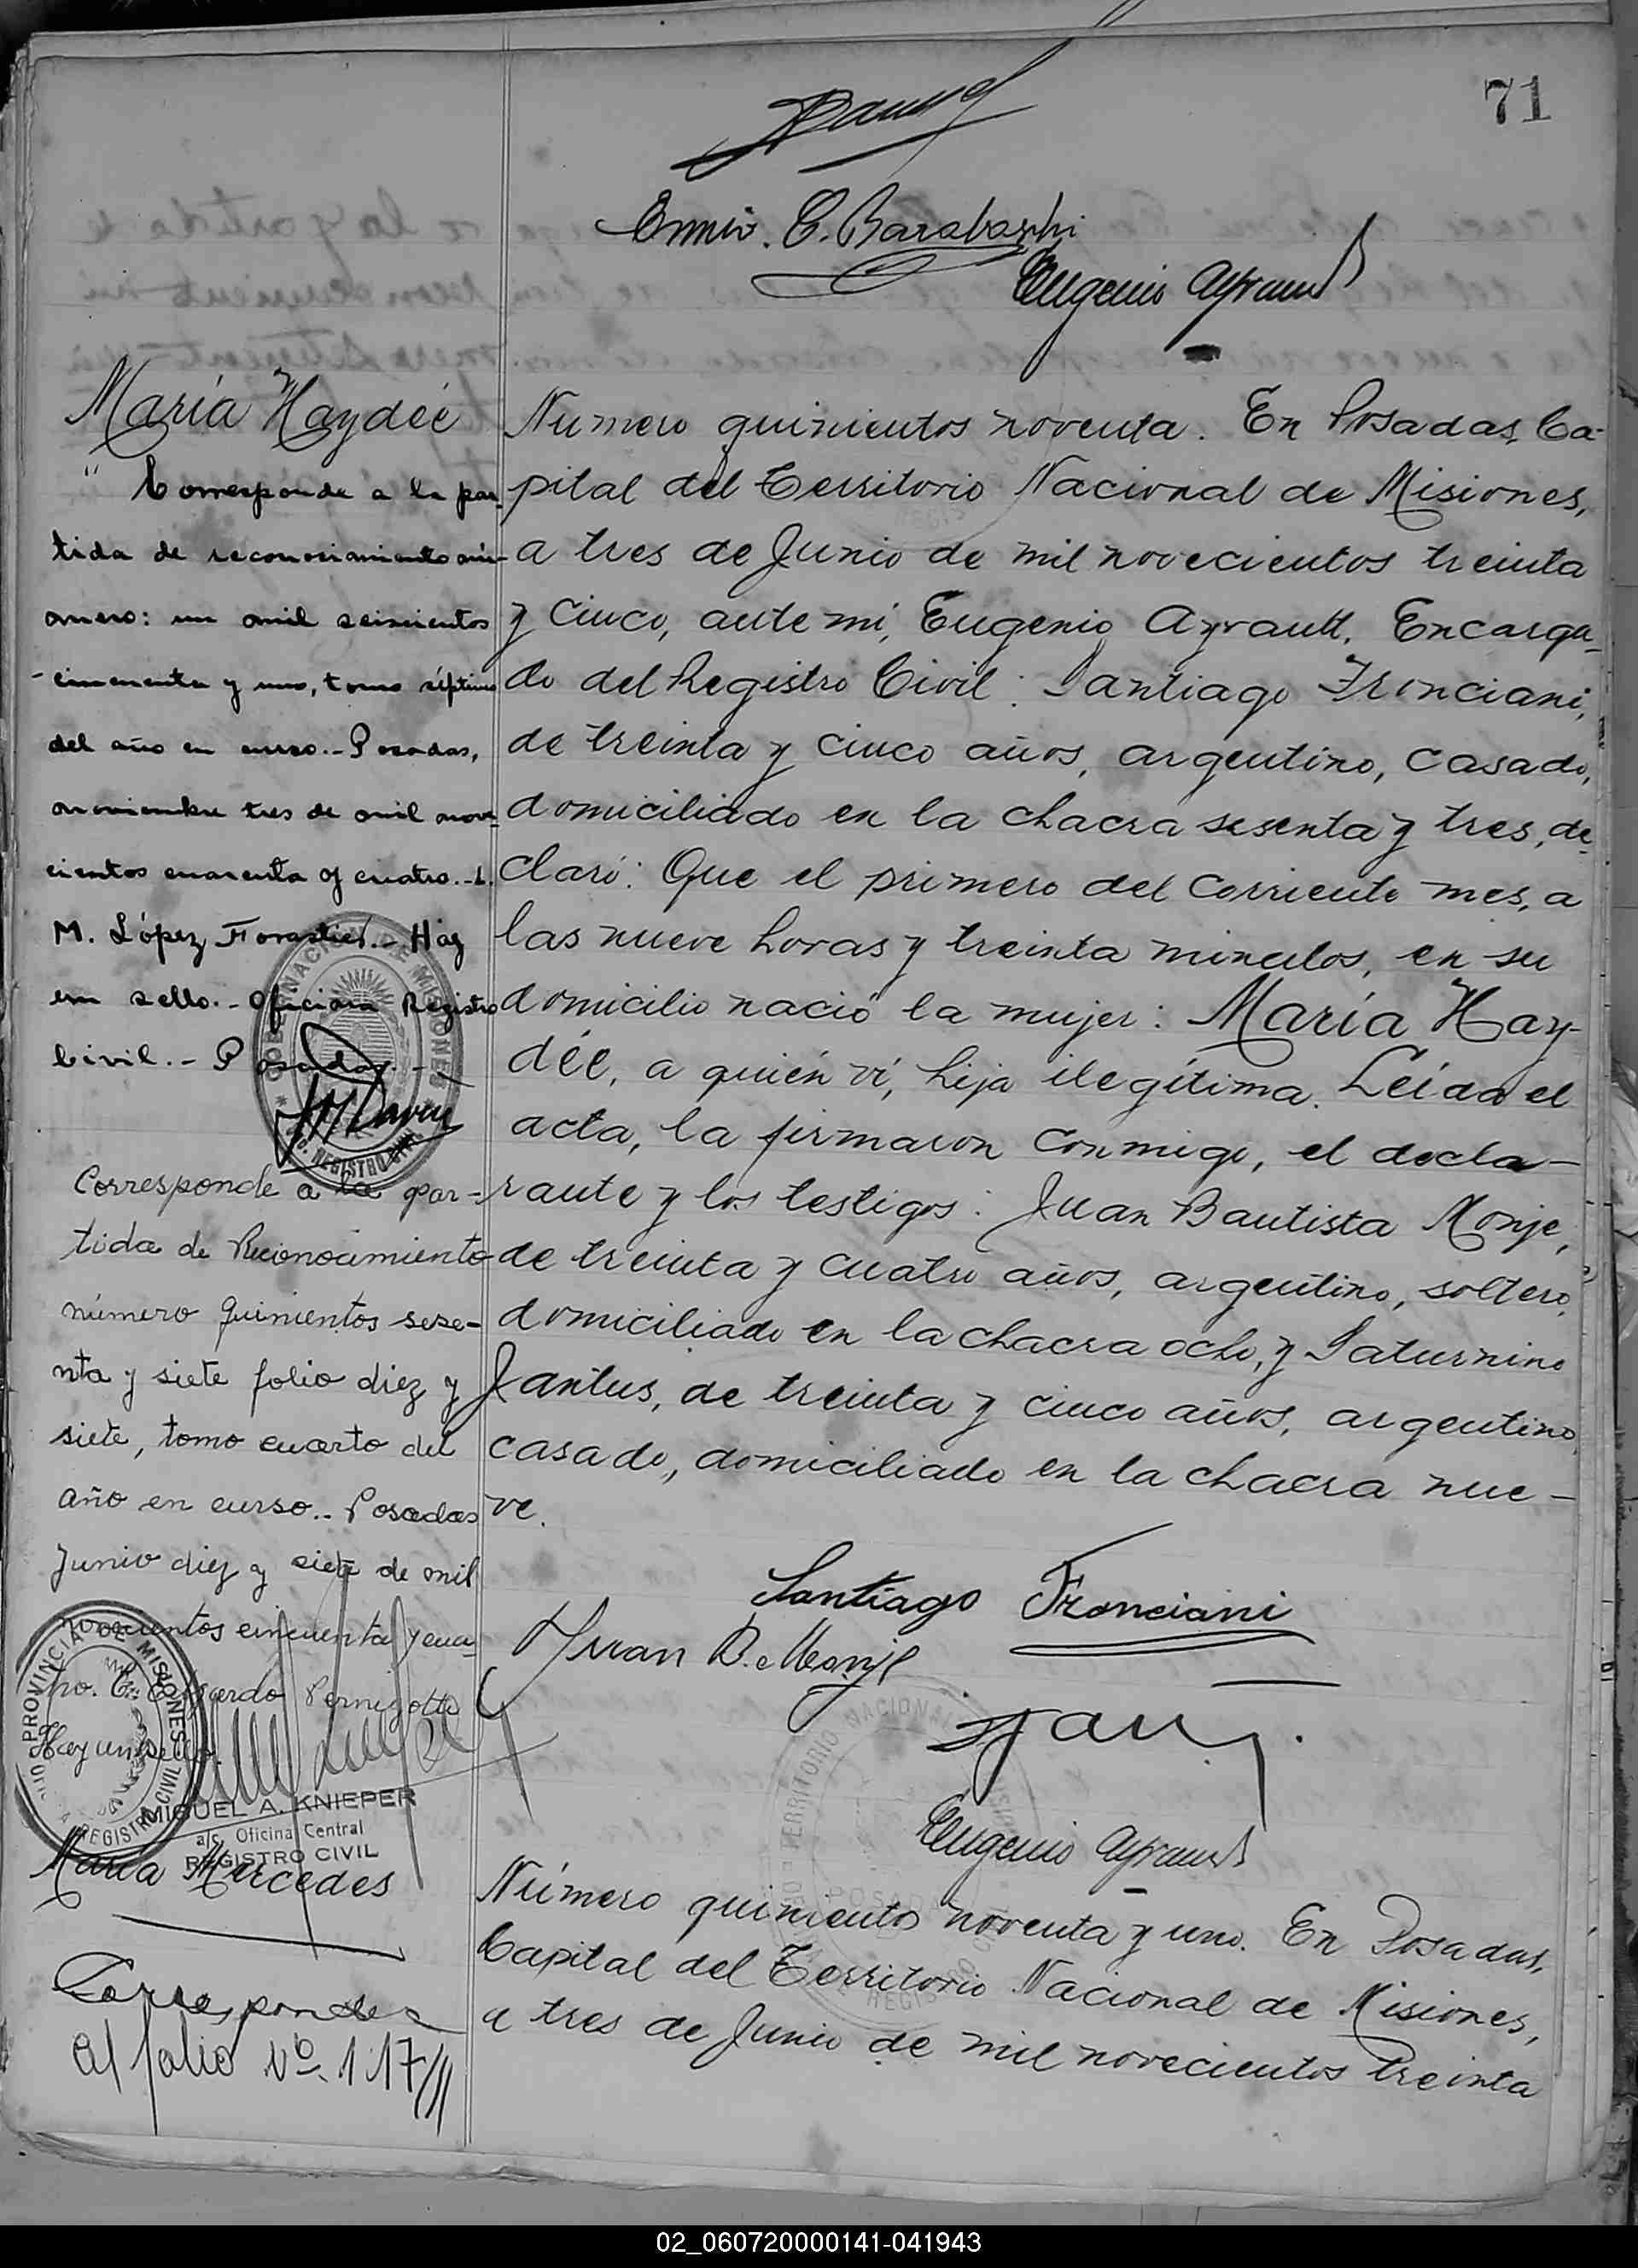 71
Ennio. C. Barabaschi
Eugenio Ayrault
María Haydée
" Corresponde a la par-
tida de reconocimiento nú-
mero: un mil seiscientos
cincuenta y uno, tomo séptimo
del año en curso.- Posadas,
noviembre tres de mil nove-
cientos cuarenta y cuatro.- L.
M. López Forastier.- Hay
un sello.- Oficina Registro
Civil.- Posadas.-
GOBERNACION DE MISIONES
REGISTRO CIVIL
Corresponde a la par-
tida de Reconocimiento
número quinientos sese-
nta y siete folio diez y
siete, tomo cuarto del
año en curso.. Posadas
Junio diez y siete de mil
novecientos cincuenta y cua
tro. C. Edgardo Pernigotti
Hay un sello.
PROVINCIA DE MISIONES
REGISTRO CIVIL
MIGUEL A. KNIEPER
a/c. Oficina Central
REGISTRO CIVIL
Numero quinientos noventa. En Posadas, Ca-
pital del Territorio Nacional de Misiones,
a tres de Junio de mil novecientos treinta
y cinco, ante mi, Eugenio Ayrault, Encarga-
do del Registro Civil: Santiago Fronciani,
de treinta y cinco años, argentino, casado,
domiciliado en la chacra sesenta y tres, de-
claró: Que el primero del corriente mes, a
las nueve horas y treinta minutos, en su
domicilio nació la mujer: María Hay-
dée, a quién ví, hija ilegítima. Leída el
acta, la firmaron conmigo, el decla-
rante y los testigos: Juan Bautista Monje,
de treinta y cuatro años, argentino, soltero,
domiciliado en la chacra ocho, y Saturnino
Jantus, de treinta y cinco años, argentino,
casado, domiciliado en la chacra nue-
ve.
Santiago Fronciani
Juan B. Monje
Eugenio Ayrault
TERRITORIO NACIONAL
POSADAS
María Mercedes
Corresponde
al folio Nº 117
Número quinientos noventa y uno. En Posadas,
Capital del Territorio Nacional de Misiones,
a tres de Junio de mil novecientos treinta
02_060720000141-041943